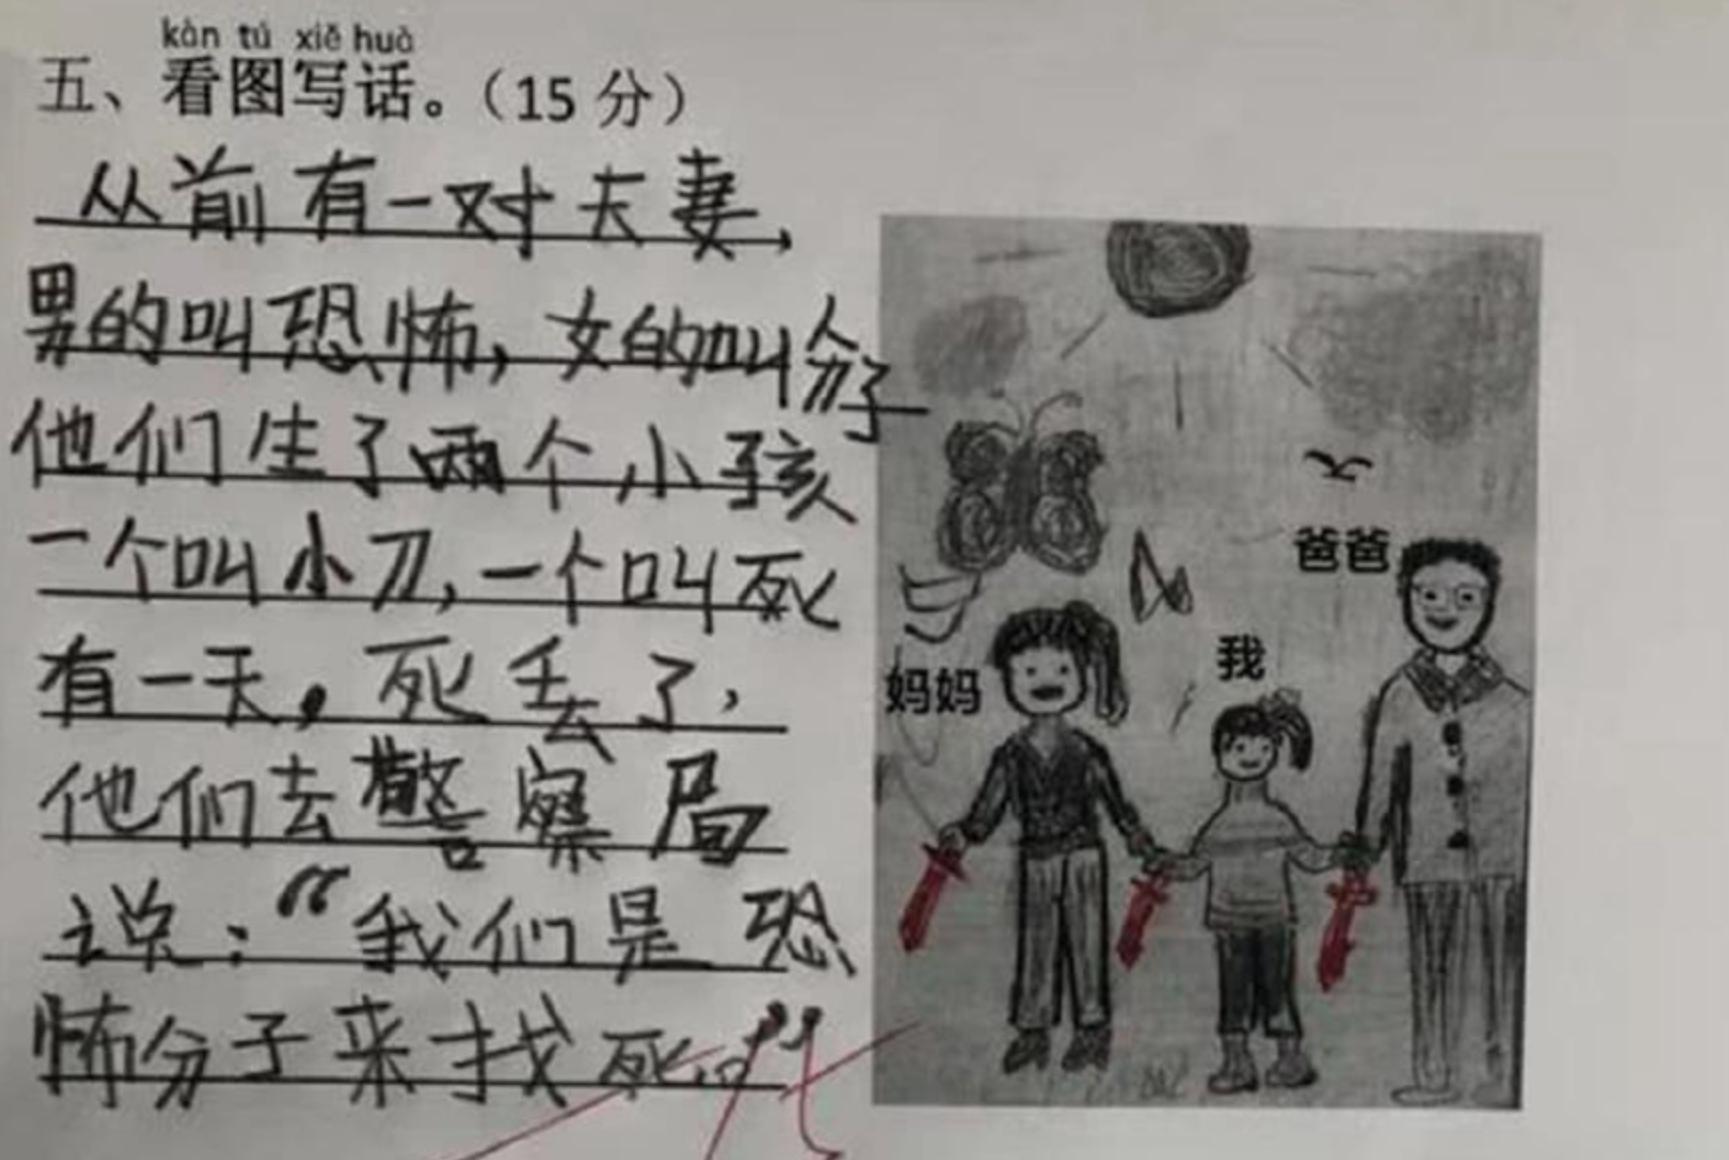 kàn tú xiě huà
五、看图写话。（15 分）
从前有一对夫妻，
男的叫恐怖，女的叫分子
他们生了两个小孩
一个叫小刀，一个叫死
有一天，死丢了，
他们去警察局
说：“我们是恐
怖分子来找死。”
爸爸
我
妈妈